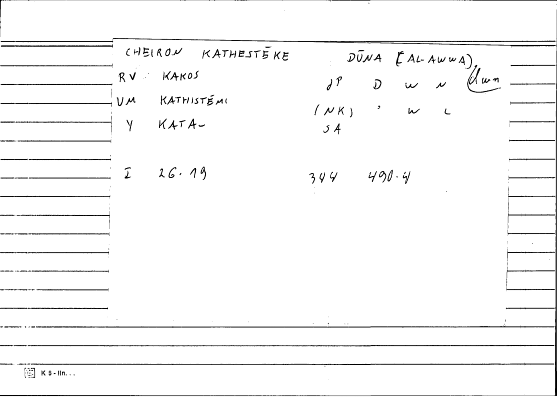 CHEIRON KATHESTĒKE DŪNA [AL-AWWA),
RV KAKOS JP D W N
VM KATHISTĒMI (NK) ' W L
Y KATA- SA
I 26.19 344 490.4
K 5 - lin...